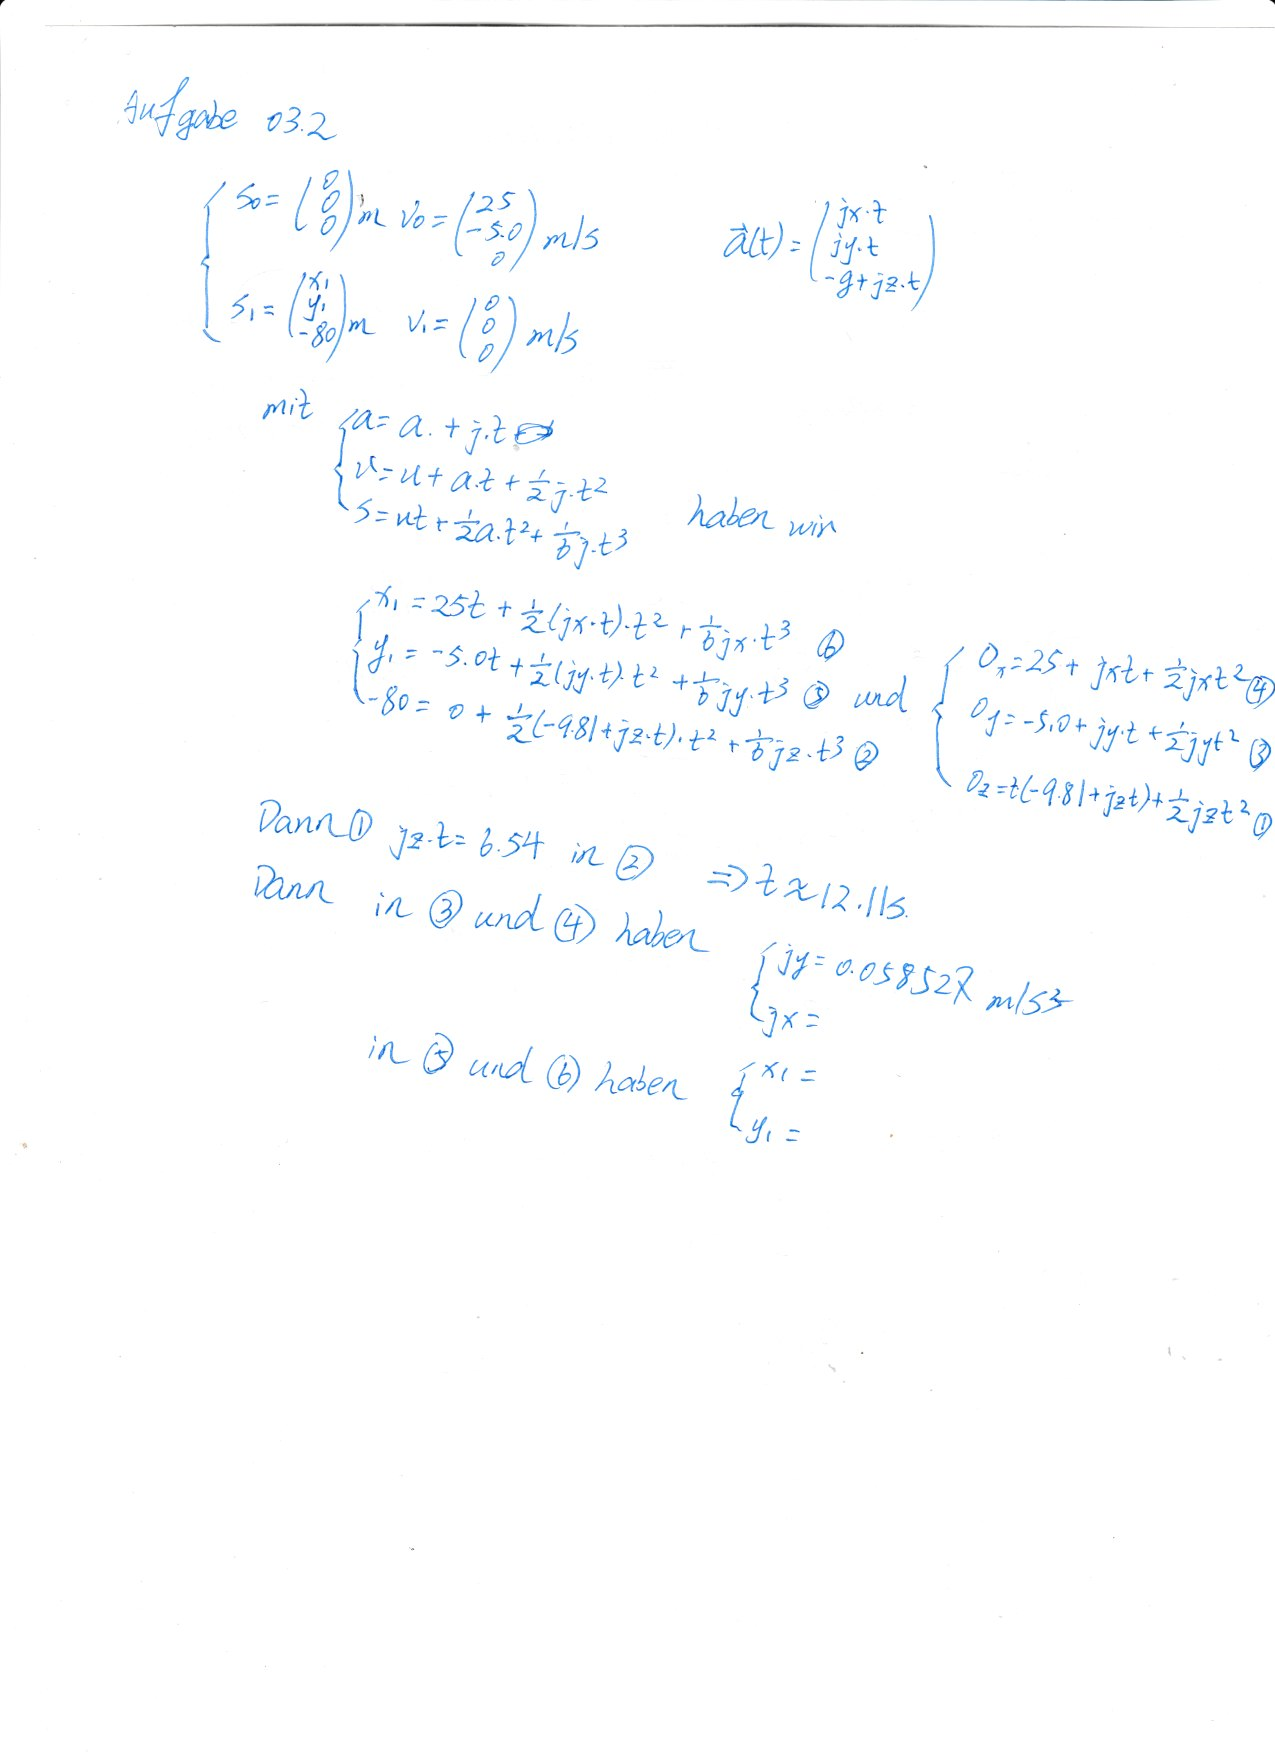 Aufgabe 03.2
S0 = (0 0 0) m V0 = (25 -5.0 0) m/s a⃗(t) = (jx·t jy·t -g+jz·t)
S1 = (x1 y1 -80) m V1 = (0 0 0) m/s
mit a = a. + j.t
v = u + a.t + 1/2 j.t²
s = ut + 1/2 a.t² + 1/6 j.t³ haben wir
x1 = 25t + 1/2(jx·t)·t² + 1/6 jx·t³ ⑥
y1 = -5.0t + 1/2(jy·t)·t² + 1/6 jy·t³ ⑤ und
-80 = 0 + 1/2(-9.81+jz·t)·t² + 1/6 jz·t³ ②
0x = 25 + jxt + 1/2 jxt² ④
0y = -5.0 + jy·t + 1/2 jyt² ③
0z = t(-9.81+jzt) + 1/2 jzt² ①
Dann ① jz·t = 6.54 in ② ⇒ t ≈ 12.11s.
Dann in ③ und ④ haben jy = 0.058527 m/s³
jx =
in ⑤ und ⑥ haben x1 =
y1 =